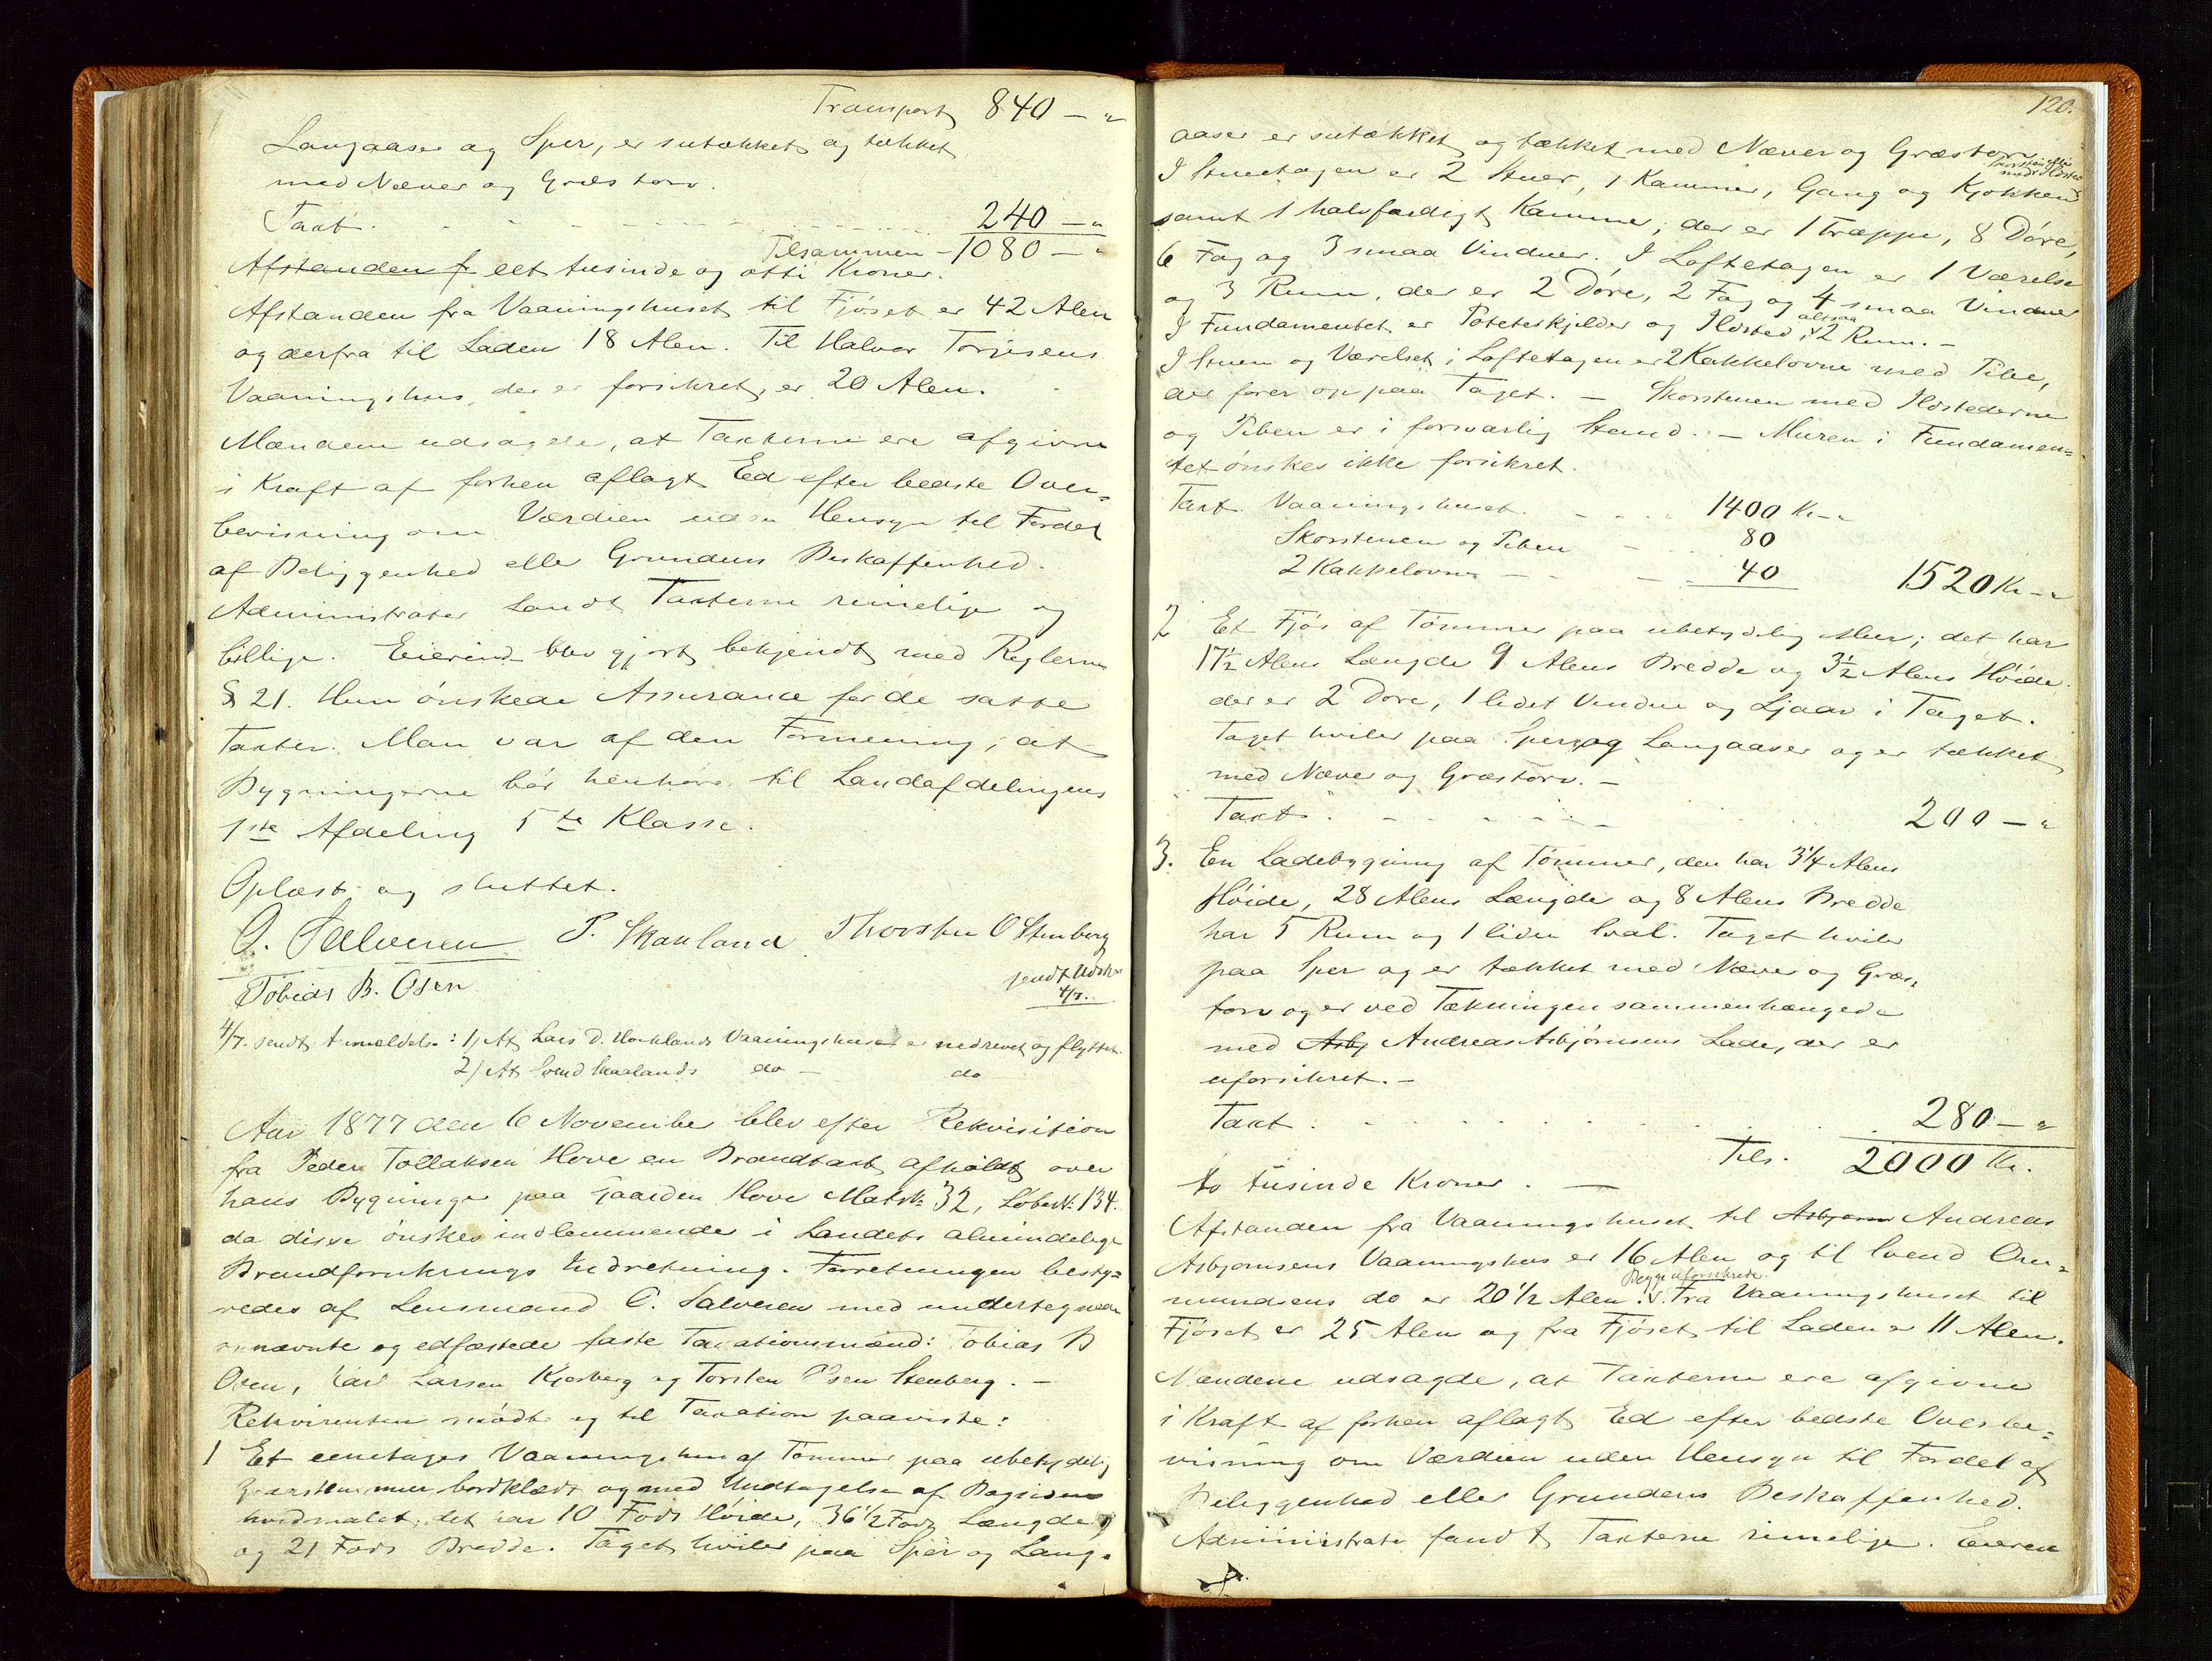 Transport 840 — "
Langaaser og Sper, er sutækket og tækket
med Næver og Græstorv.
Taxt. 240 — "
Tilsammen - 1080 — "
Afstanden f eet tusinde og otti Kroner.
Afstanden fra Vaaningshuset til Fjøset er 42 Alen
og derfra til Laden 18 Alen. Til Halvor Torjesens
Vaaningshus, der er forsikret, er 20 Alen.
Mændene udsagde, at Taxterne ere afgivne
i Kraft af forhen aflagt Ed efter bedste Over-
bevisning om Værdien uden Hensyn til Fordel
af Beliggenhed eller Grundens Beskaffenhed.
Administrator fandt Taxterne rimelige og
billige. Eierinden blev gjort bekjendt med Reglerne
§ 21. Hun ønskede Assurance for de satte
Taxter. Man var af den Formening, at
Bygningerne bør henhøre til Landafdelingens
1ste Afdeling 5te Klasse.
Oplæst og sluttet.
O. Salvesen P. Skaaland Thorsten O Stenberg
Tobias B. Osen
sendt Udskr
4/7.
4/7. sendt Anmeldelse: 1, At Lars D. Vaaningshuset er nedrevet og flyttet.
2/ At Svend Skaalands do — do
Aar 1877 den 6 November blev efter Rekvisition
fra Peder Tollaksen Hove en Brandtaxt afholdt over
hans Bygninger paa Gaarden Hove Matr.№ 32, Løbe№ 134.
da disse ønskes indlemmende i Landets almindelige
Brandforsikrings Indretning. Forretningen besty-
redes af Lensmand O. Salvesen med undertegnede
opnævnte og edfæstede faste Taxationsmænd: Tobias B
Osen, Karl Larsen Kjerberg og Torsten Olsen Stenberg. —
Rekvirenten mødte og til Taxation paaviste:
1 Et eenetages Vaaningshus af Tømmer paa ubetydelig
Graastensmur bordklædt og med Undtagelse af Bagsiden
hvidmalet; det har 10 Fods Høide, 36 1/2 Fods Længde
og 21 Fods Bredde. Taget hviler paa Sper og Lang-
120.
aaser er sutækket og tækket med Næver og Græstorv.
I Stuetagen er 2 Stuer, 1 Kammer, Gang og Kjøkken
med Ildsted
samt 1 halvfærdigt Kammer; der er 1 Trappe, 8 Døre,
6 Fag og 3 smaa Vinduer. I Loftetagen er 1 Værelse
og 3 Rum, der er 2 Døre, 2 Fag og 4 smaa Vinduer
I Fundamentet er Poteteskjelder og Ildsted, altsaa 2 Rum. —
I Stuen og Værelset i Loftetagen er 2 Kakkelovne med Pibe,
der fører op paa Taget. — Skorstenen med Ildstederne
og Piben er i forsvarlig Stand. — Muren i Fundamen-
tet ønskes ikke forsikret.
Taxt. Vaaningshuset. 1400 Kr — "
Skorstenen og Piben 80
2 Kakkelovne 40 1520 Kr — "
2 Et Fjøs af Tømmer paa ubetydelig Mur; det har
17 1/2 Alens Længde 9 Alens Bredde og 3 1/2 Alens Høide.
der er 2 Døre, 1 lidet Vindue og Ljaar i Taget.
Taget hviler paa Sper og Langaaser og er tækket
med Næver og Græstorv. —
Taxt. 200 — "
3. En Ladebygning af Tømmer, den har 3 1/4 Alens
Høide, 28 Alens Længde og 8 Alens Bredde
har 5 Rum og 1 liden Sval. Taget hviler
paa Sper og er tækket med Næver og Græs-
torv og er ved Tækningen sammenhængende
med Asbj Andreas Asbjørnsens Lade, der er
uforsikret. —
Taxt. 280 — "
Tils. 2000 Kr.
to tusinde Kroner. —
Afstanden fra Vaaningshuset til Asbjørn Andreas
Asbjørnsens Vaaningshus er 16 Alen og til Svend Om-
mundsens do er 20 1/2 Alen. Begge uforsikrede. Fra Vaaningshuset til
Fjøset er 25 Alen og fra Fjøset til Laden er 11 Alen.
Mændene udsagde, at Taxterne ere afgivne
i Kraft af forhen aflagt Ed efter bedste Overbe-
visning om Værdien uden Hensyn til Fordel af
Beliggenhed eller Grundens Beskaffenhed.
Administrator fandt Taxterne rimelige. Eieren